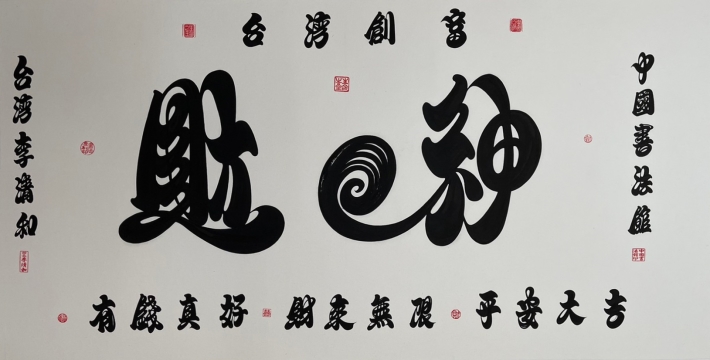 台湾創富
財神
台湾李清和
中國書法館
有錢真好 財來無限 平安大吉